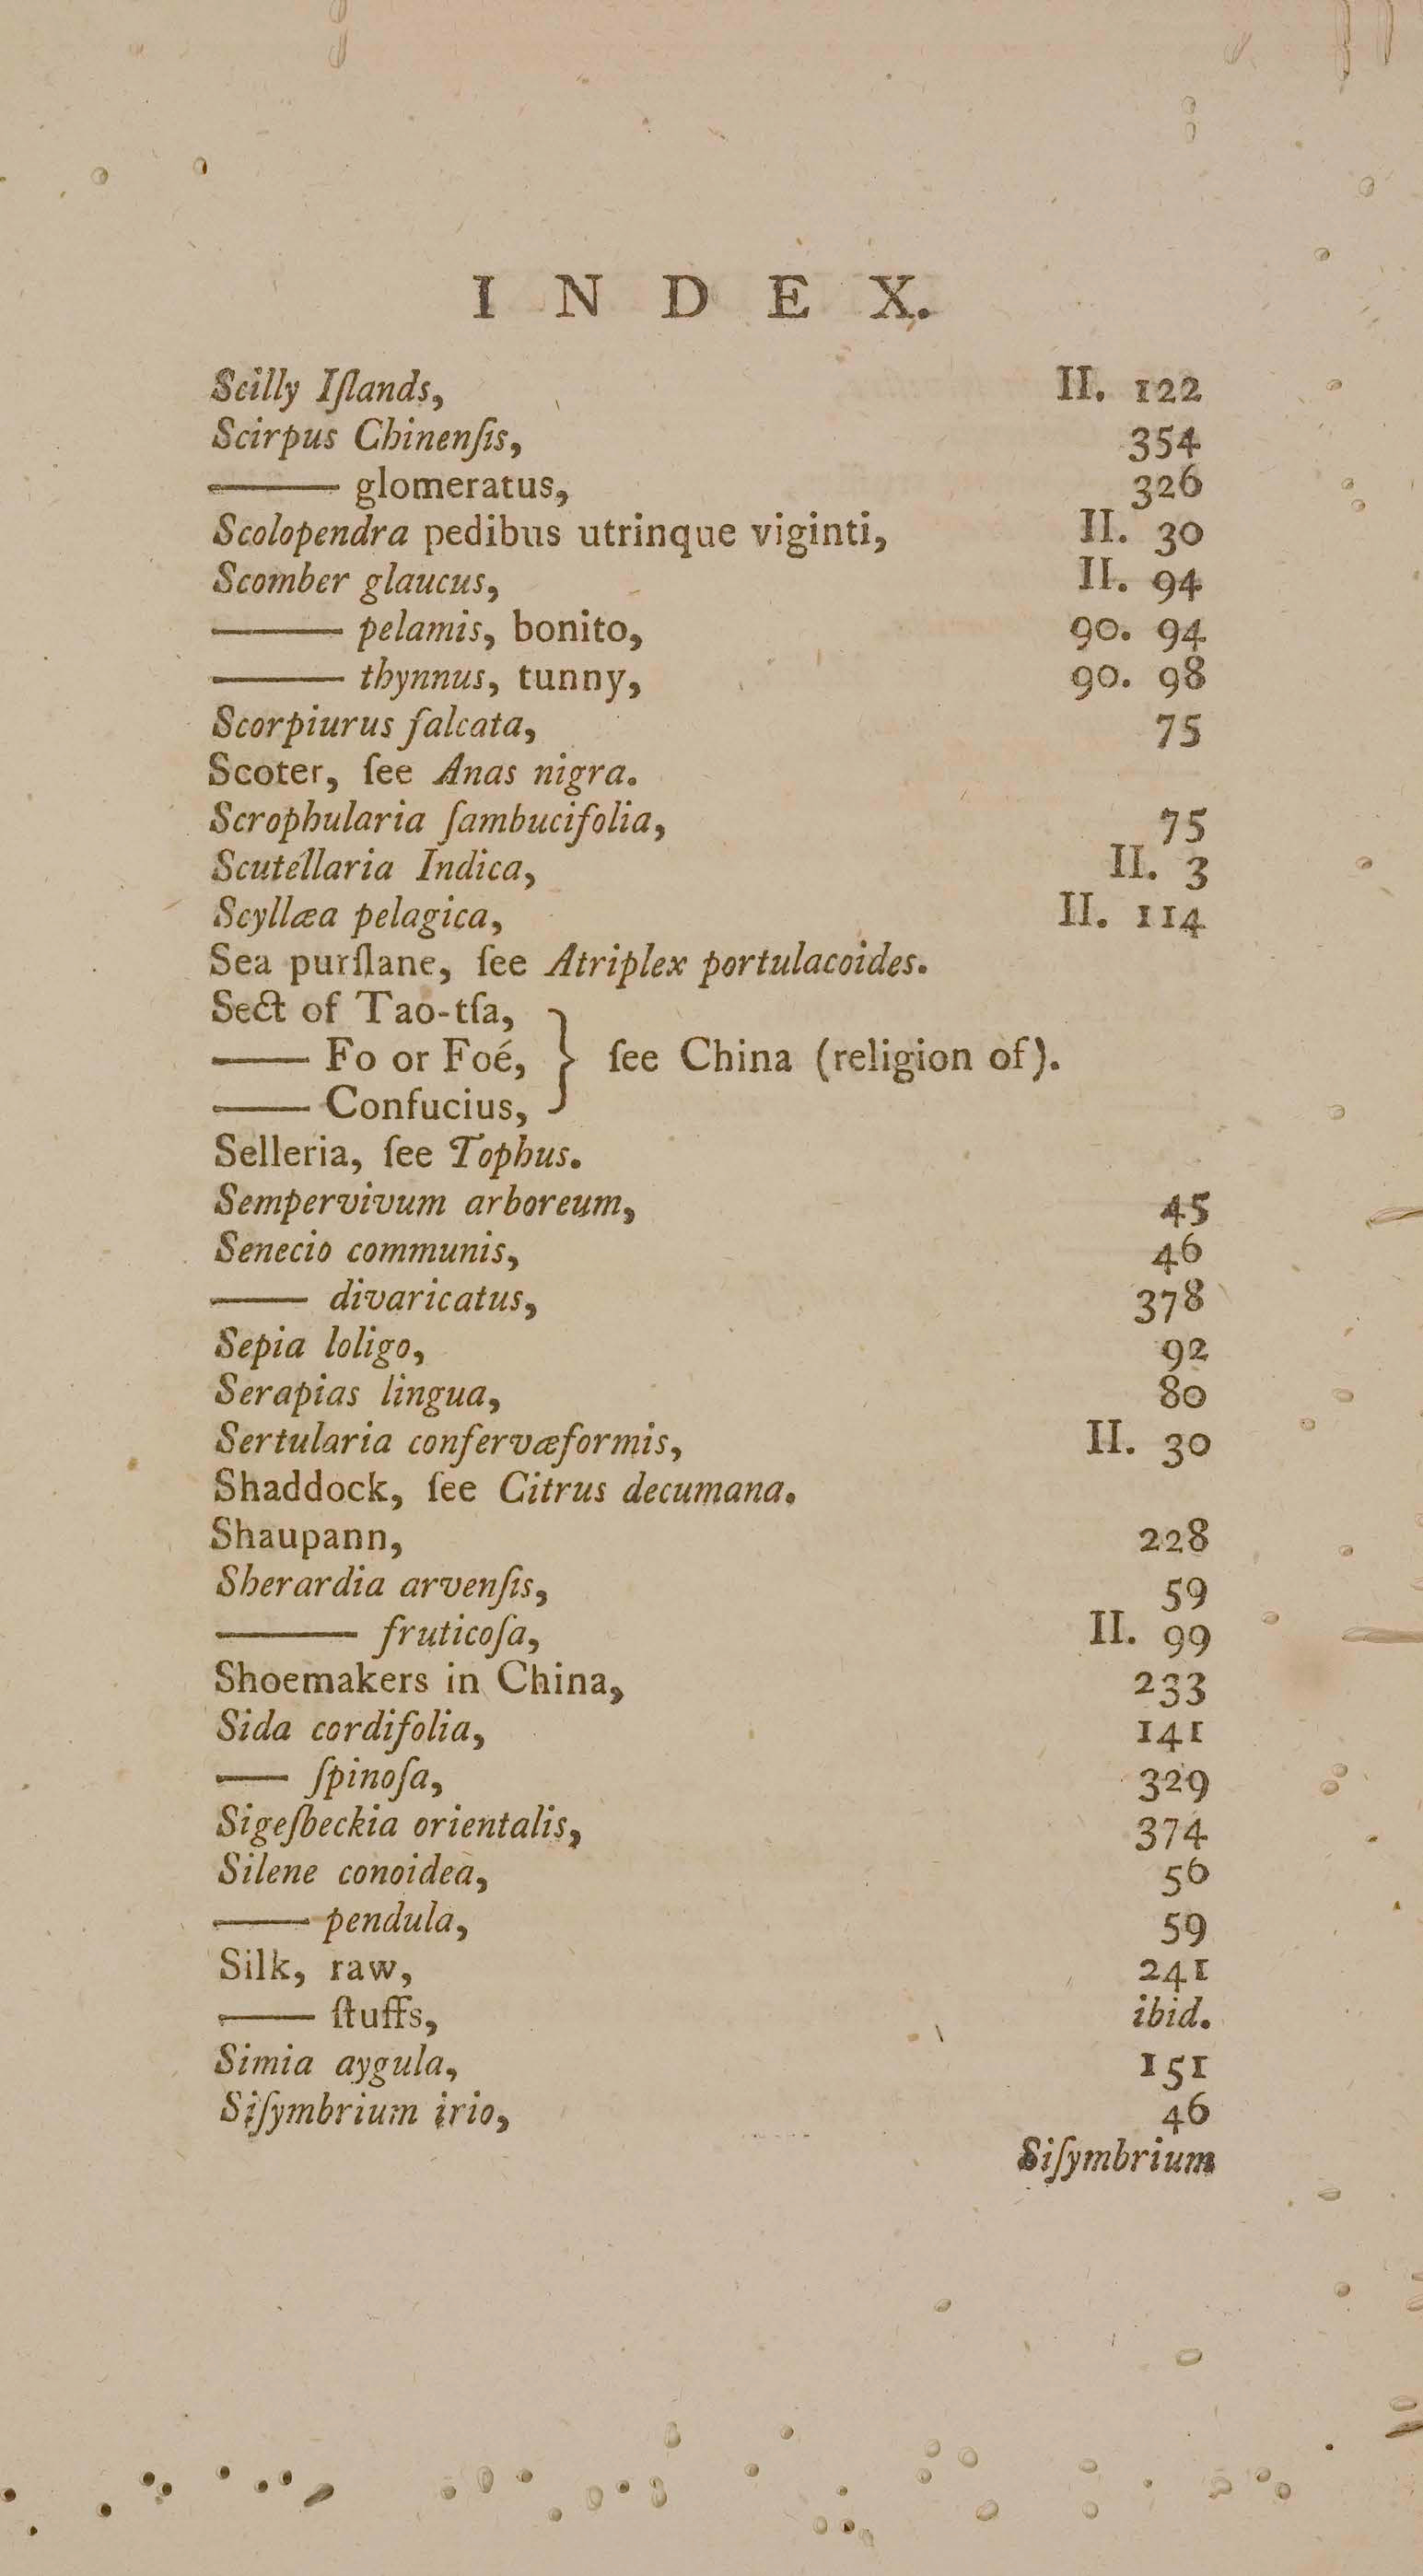 I N D E X.
Scilly Iſlands, II. 122
Scirpus Chinenſis, 354
——— glomeratus, 326
Scolopendra pedibus utrinque viginti, II. 30
Scomber glaucus, II. 94
——— pelamis, bonito, 90. 94
——— thynnus, tunny, 90. 98
Scorpiurus falcata, 75
Scoter, ſee Anas nigra.
Scrophularia ſambucifolia, 75
Scutellaria Indica, II. 3
Scyllæa pelagica, II. 114
Sea purſlane, ſee Atriplex portulacoides.
Sect of Tao-tſa,
—— Fo or Foé, } ſee China (religion of).
—— Confucius,
Selleria, ſee Tophus.
Sempervivum arboreum, 45
Senecio communis, 46
—— divaricatus, 378
Sepia loligo, 92
Serapias lingua, 80
Sertularia confervæformis, II. 30
Shaddock, ſee Citrus decumana.
Shaupann, 228
Sherardia arvenſis, 59
——— fruticoſa, II. 99
Shoemakers in China, 233
Sida cordifolia, 141
—— ſpinoſa, 329
Sigeſbeckia orientalis, 374
Silene conoidea, 56
—— pendula, 59
Silk, raw, 241
—— ſtuffs, ibid.
Simia aygula, 151
Siſymbrium irio, 46
Siſymbrium